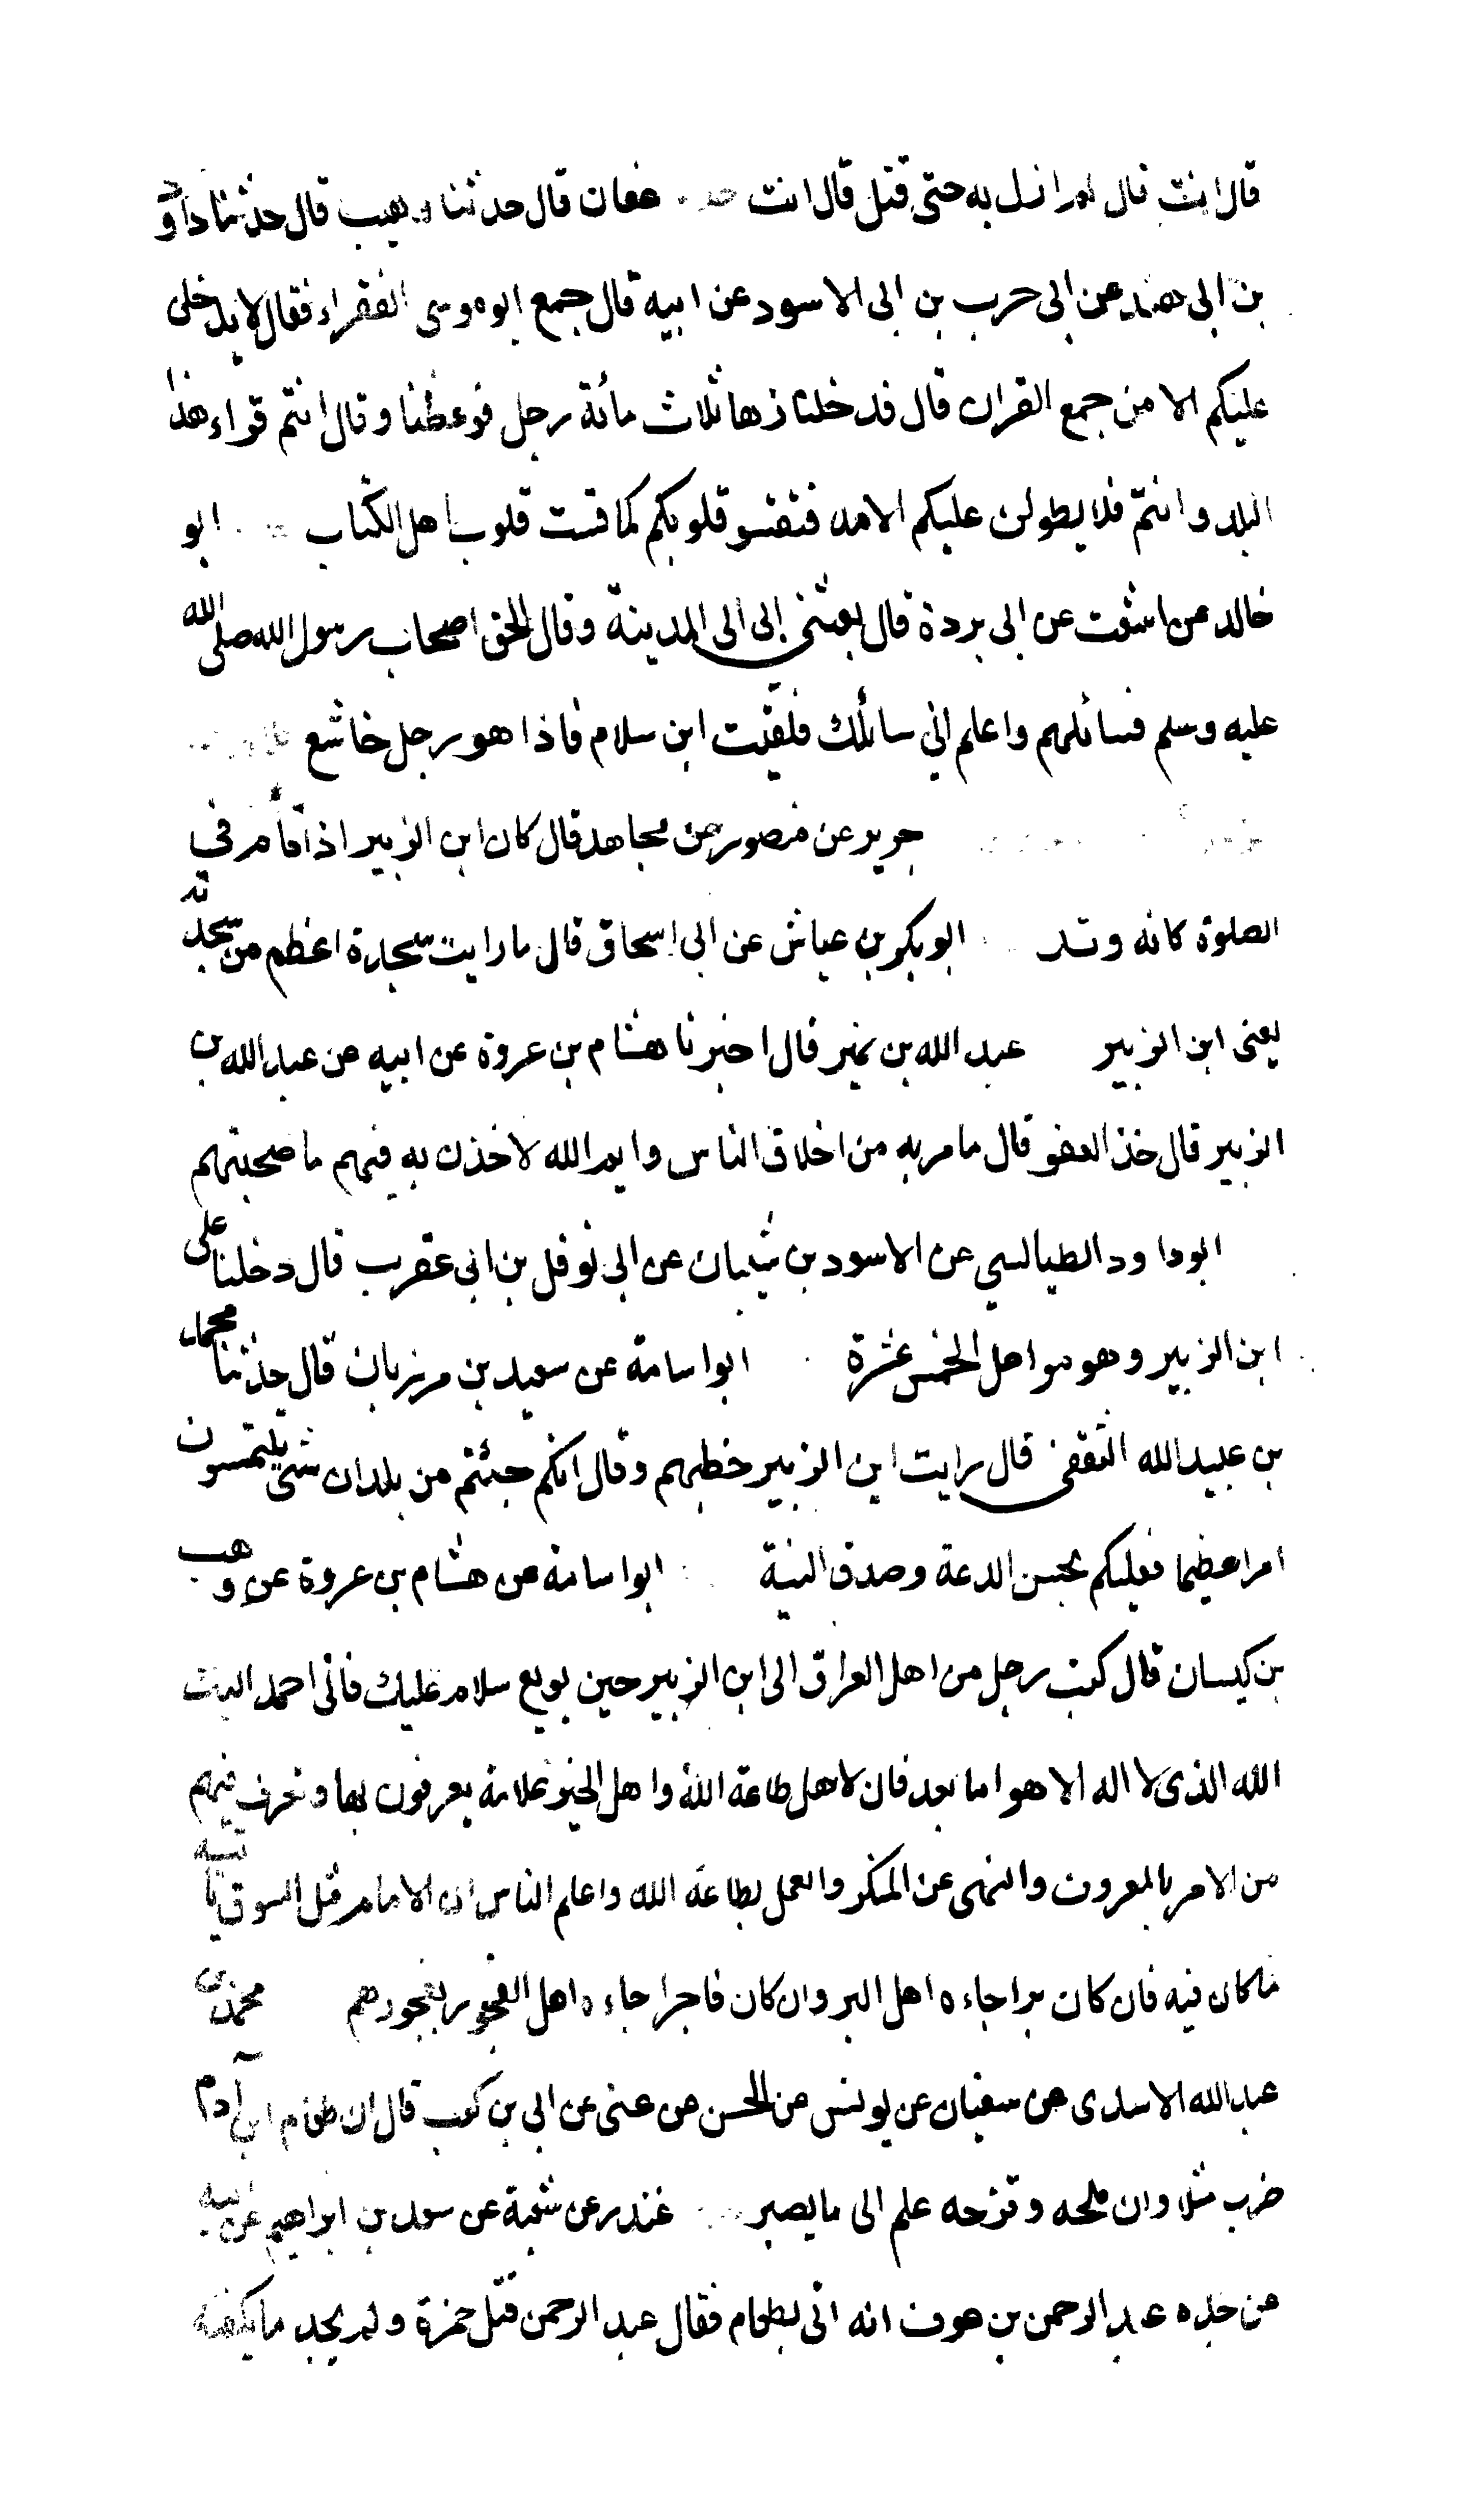 قال انت قال لم ازل به حتى قتل قال انت عفان قال حدثنا وهيب قال حدثنا داود
بن ابى هند عن ابى حرب بن ابى الاسود عن ابيه قال جمع ابو موسى الفقراء فقال لا يدخلى
عليكم الا من جمع القران قال فدخلنا زها ثلاث مائة رجل فوعظنا وقال انتم قراء هذا
البلد وانتم فلا يطولن عليكم الامد فتقسو قلوبكم كما قست قلوب اهل الكتاب ابو
خالد عن اشعث عن ابى بردة قال بعثنى ابى الى المدينة وقال الحق اصحاب رسول الله صلى الله
عليه وسلم فسائلهم واعلم اني سائلك فلقيت ابن سلام فاذا هو رجل خاشع
جرير عن منصور عن مجاهد قال كان ابن الزبير اذا قام في
الصلوة كانه وتد ابو بكر بن عياش عن ابى اسحاق قال ما رايت سجدة اعظم من سجدته
يعنى ابن الزبير عبد الله بن نمير قال اخبرنا هشام بن عروة عن ابيه عن عبد الله بن
الزبير قال خذ العفو قال ما امر به من اخلاق الناس وايم الله لاخذن به فيهم ما صحبتهم
ابو داود الطيالسي عن الاسود بن شيبان عن ابى نوفل بن ابى عقرب قال دخلنا على
ابن الزبير وهو مواصل الخمس عشرة ابو اسامة عن سعيد بن مرزبان قال حدثنا محمد
بن عبيد الله الثقفى قال رايت ابن الزبير خطبهم وقال انكم جئتم من بلدان شتى تلتمسون
امرا عظيما فعليكم بحسن الدعة وصدق النية ابو اسامة عن هشام بن عروة عن وهب
بن كيسان قال كتب رجل من اهل العراق الى ابن الزبير حين بويع سلام عليك فانى احمد اليك
الله الذى لا اله الا هو اما بعد فان لاهل طاعة الله واهل الخير علامة يعرفون بها وتعرف فيهم
من الامر بالمعروف والنهى عن المنكر والعمل بطاعة الله واعلم الناس ان الامام مثل السوق ياتيه
ما كان فيه فان كان برا جاءه اهل البر وان كان فاجرا جاءه اهل الفجور بفجورهم محمد بن
عبد الله الاسدى عن سفيان عن يونس عن الحسن عن عتى عن ابى بن كعب قال ان طعام ابن آدم
ضرب مثلا وان ملحه وقزحه علم الى ما يصير غندر عن شعبة عن سعد بن ابراهيم عن ابيه
عن جده عبد الرحمن بن عوف انه اتى بطعام فقال عبد الرحمن قتل حمزة ولم يجد ما يكفنه